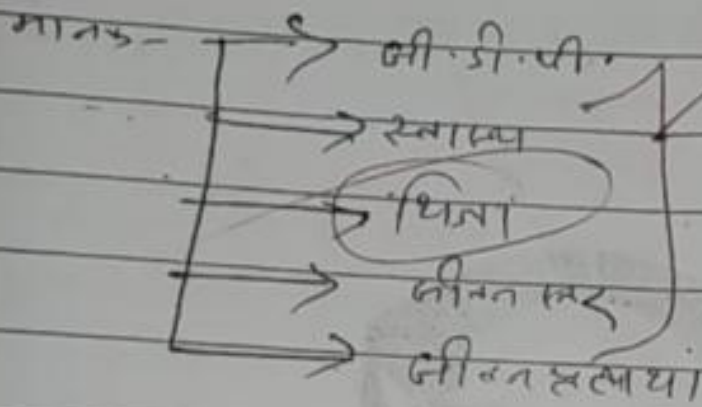 मानक -
जी.डी.पी.
स्वास्थ्य
शिक्षा
जीवन स्तर
जीवन प्रत्याशा